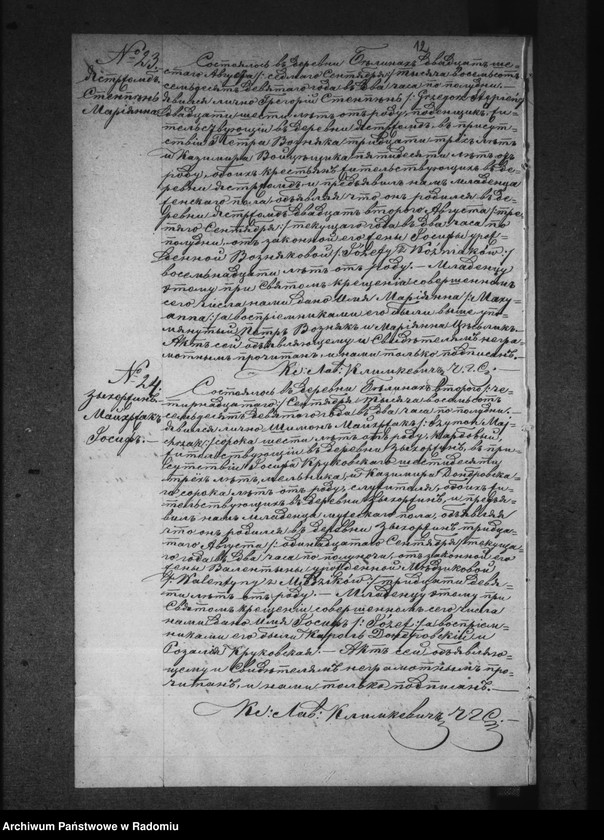 12
№ 23.
Ястрембъ
Стемпень
Маріянна
Состоялось въ деревни Бѣлинахъ двадцать ше=
стаго Августа /: седьмаго Сентября :/ тысяча восемьсотъ
семьдесятъ девятаго года въ два часа по полудни.
явился лично Грегорій Стемпень /: Grzegorz Stępień :/
двадцати шести лѣтъ отъ роду, поденщикъ, жи=
тельствующій въ деревни Ястрембъ, въ присут=
ствіи Петра Возняка тридцати трехъ лѣтъ
и Казимира пятидесяти лѣтъ отъ
роду, обоихъ крестьянъ жительствующихъ въ де=
ревни Ястрембъ и предъявилъ намъ младенца
женскаго пола, объявляя что онъ родился въ де=
ревни Ястрембъ двадцать втораго Августа /: тре=
тяго Сентября :/ текущаго года въ два часа по
полудни, отъ законной его жены Іосифы урож=
денной Возняковой /: Józefy z Woźniaków :/
восемьнадцати лѣтъ отъ роду. — Младенцу
этому при Святомъ крещеніи совершенномъ
сего числа нами дано имя Маріянна /: Mary=
anna :/ а воспріемниками его были выше упо=
мянутый Петръ Вознякъ и Маріянна
Актъ сей объявляющему и Свидѣтелямъ негра=
мотнымъ прочитанъ и нами только подписанъ. —
Кс: Лав: Климкевичъ Ч. Г. С.
№ 24.
Майхржакъ
Іосифъ. —
Состоялось въ деревни Бѣлинахъ втораго /: че=
тырнадцатаго :/ Сентября тысяча восемьсотъ
семьдесятъ девятаго года въ два часа по полудни.
явился лично Шимонъ Майхржакъ /: Szymon Maj=
chrzak :/ сорока шести лѣтъ отъ роду,
жительствующій въ деревни въ при=
сутствіи Іосифа Круковскаго шестидесяти
трехъ лѣтъ мельника и Казимира
сорока лѣтъ отъ роду, служителя, обоихъ жи=
тельствующихъ въ деревни и предъя=
вилъ намъ младенца мужескаго пола, объявляя
что онъ родился въ деревни тридца=
таго Августа /: одинадцатаго Сентября :/ текуща=
го года въ два часа по полуночи, отъ законной его
жены Валентыны урожденной
/: Walentyny z :/ тридцати девя=
ти лѣтъ отъ роду. — Младенцу этому при
Святомъ крещеніи совершенномъ сего числа
нами дано имя Іосифъ /: Józef :/ а воспріем=
никами его были Кароль и
Розалія Круковская. — Актъ сей объявляю=
щему и Свидѣтелямъ неграмотнымъ про=
читанъ и нами только подписанъ. —
Кс: Лав: Климкевичъ Ч. Г. С. —
Archiwum Państwowe w Radomiu